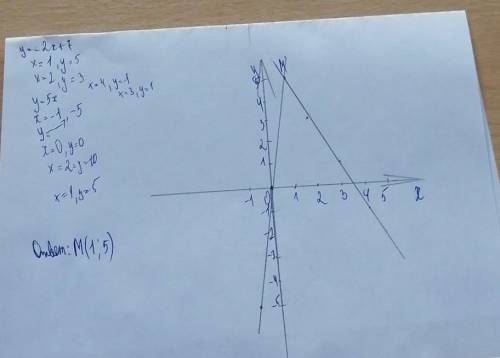 y=-2x+7
x=1, y=5
x=2, y=3
x=4, y=-1
x=3, y=1
y=5x
x=-1, -5
y=
x=0, y=0
x=2=y=10
x=1, y=5
Ответ: M(1; 5)
y
M
5
4
3
2
1
-1 0 1 2 3 4 5 x
-1
-2
-3
-4
-5